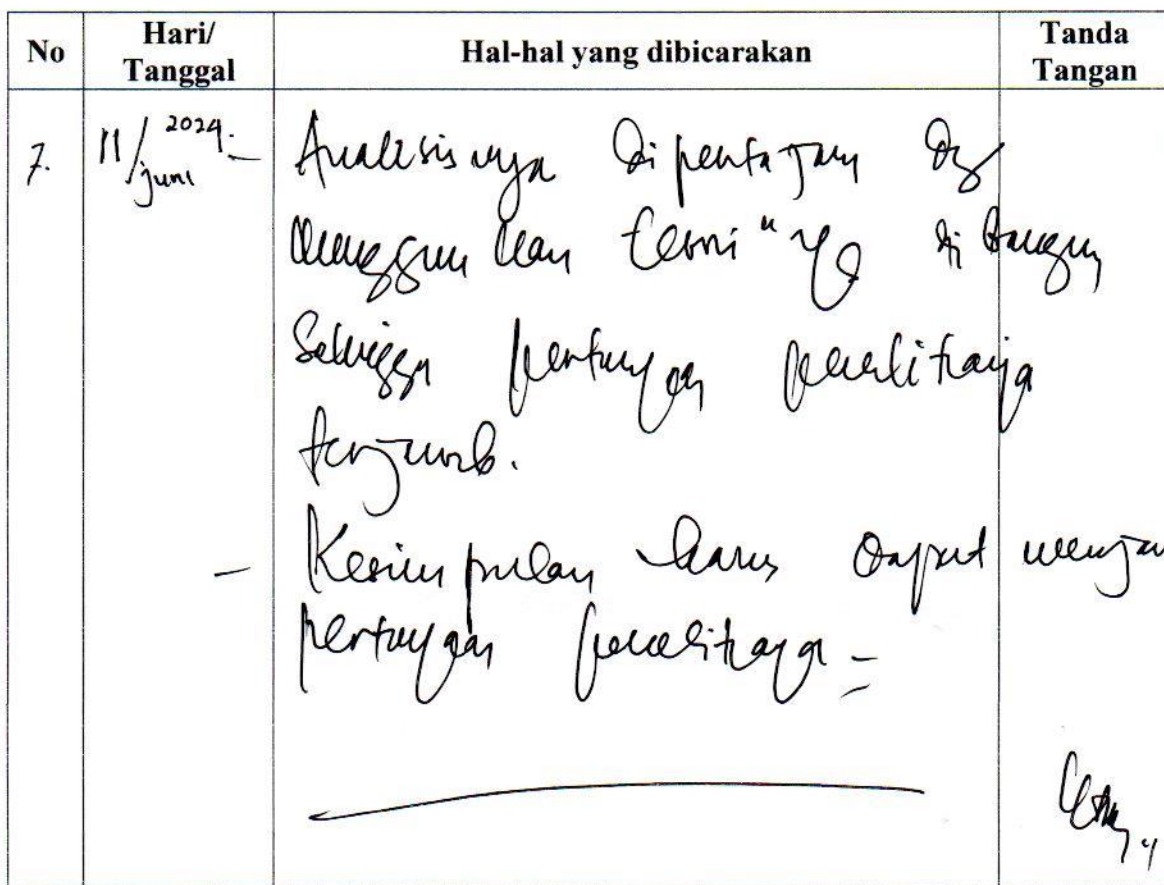 No
Hari/
Tanggal
Hal-hal yang dibicarakan
Tanda
Tangan
7.
11/juni 2024. –
Analisisnya dipertajam dg
menggunakan teori " yg dibangun
Sehingga pertanyaan penelitiannya
terjawab.
– Kesimpulan harus dapat menjaw
pertanyaan penelitiannya –